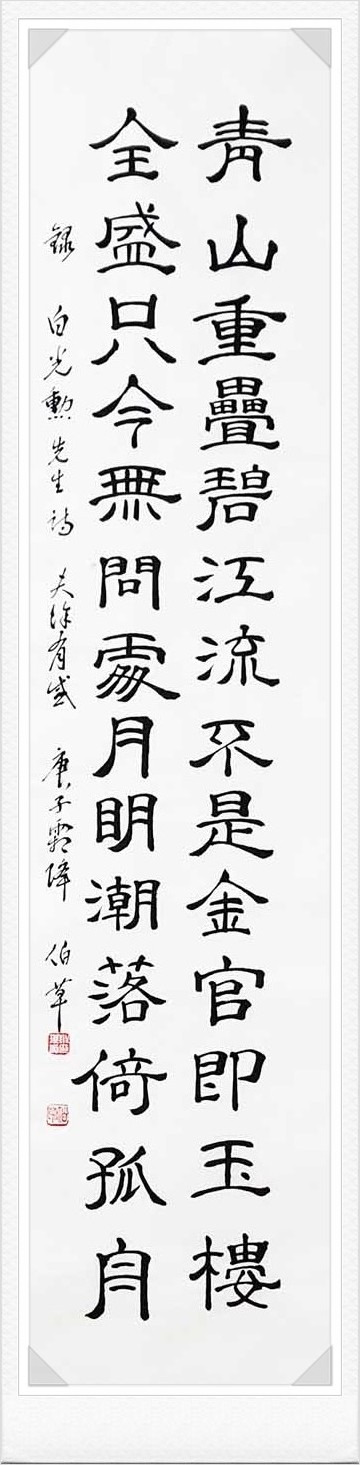 青山重疊碧江流不是金宮即玉樓
全盛只今無問處月明潮落倚孤舟
錄 白光勳先生詩 夫餘有感 庚子霜降 伯草